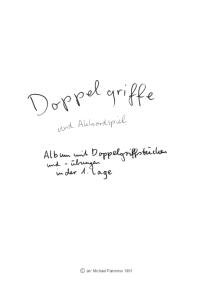 Doppelgriffe
und Akkordspiel
Album mit Doppelgriffstücken
und -übungen
in der 1. Lage
© arr. Michael 1991